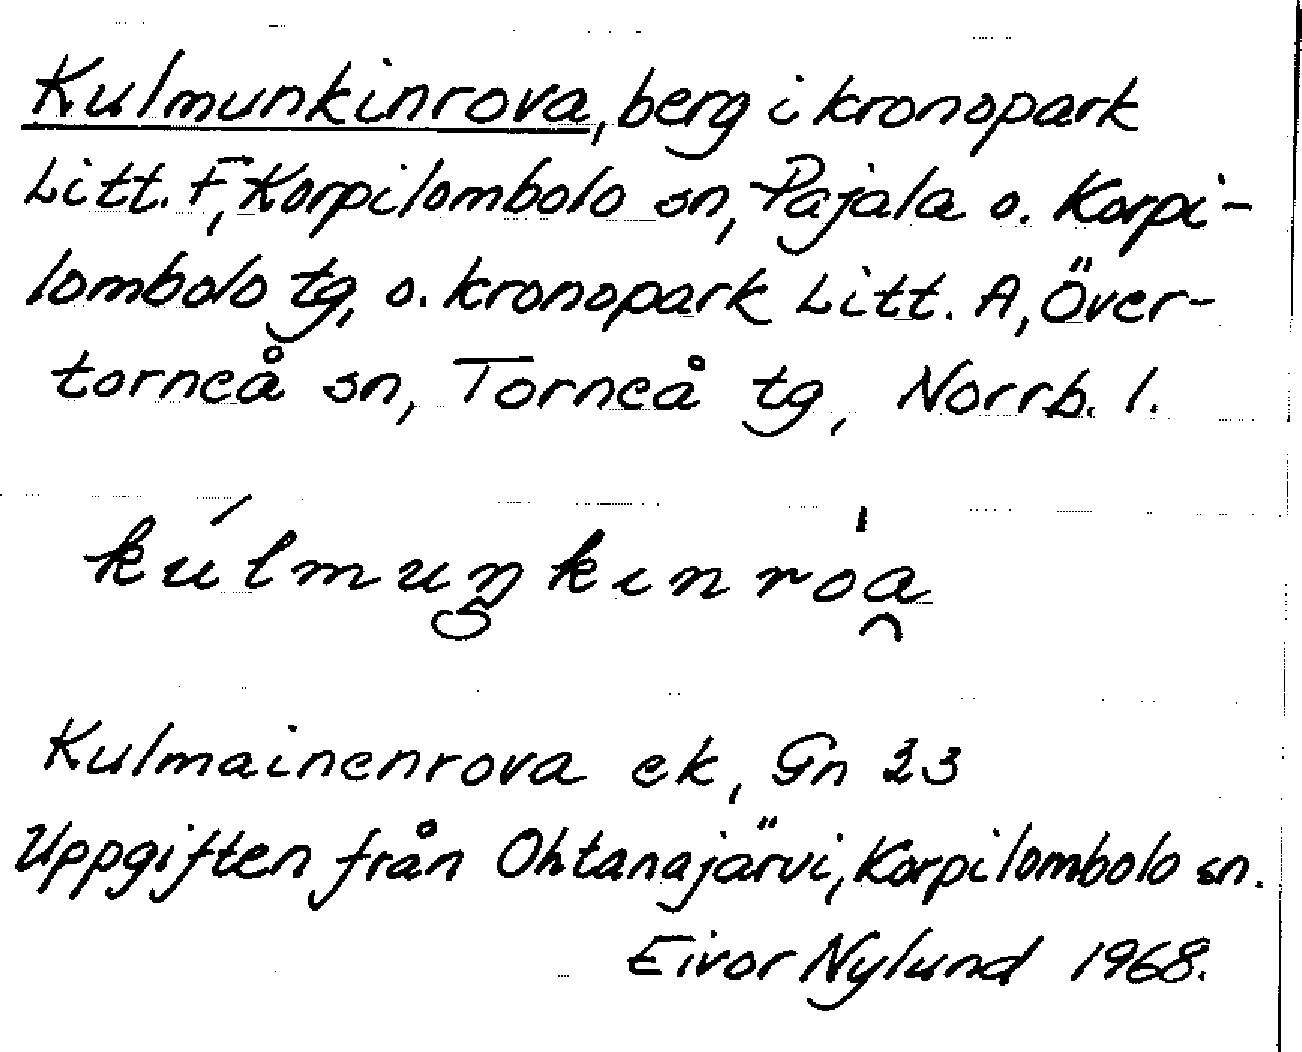 Kulmunkinrova, berg i kronopark
Litt. F, Korpilombolo sn, Pajala o. Korpi-
lombolo tg, o. kronopark Litt. A, Över-
torneå sn, Torneå tg, Norrb. l.
kúlmuŋkınroa̯
Kulmainenrova ek, Gn 23
Uppgiften från Ohtanajärvi, Korpilombolo sn.
Eivor Nylund 1968.